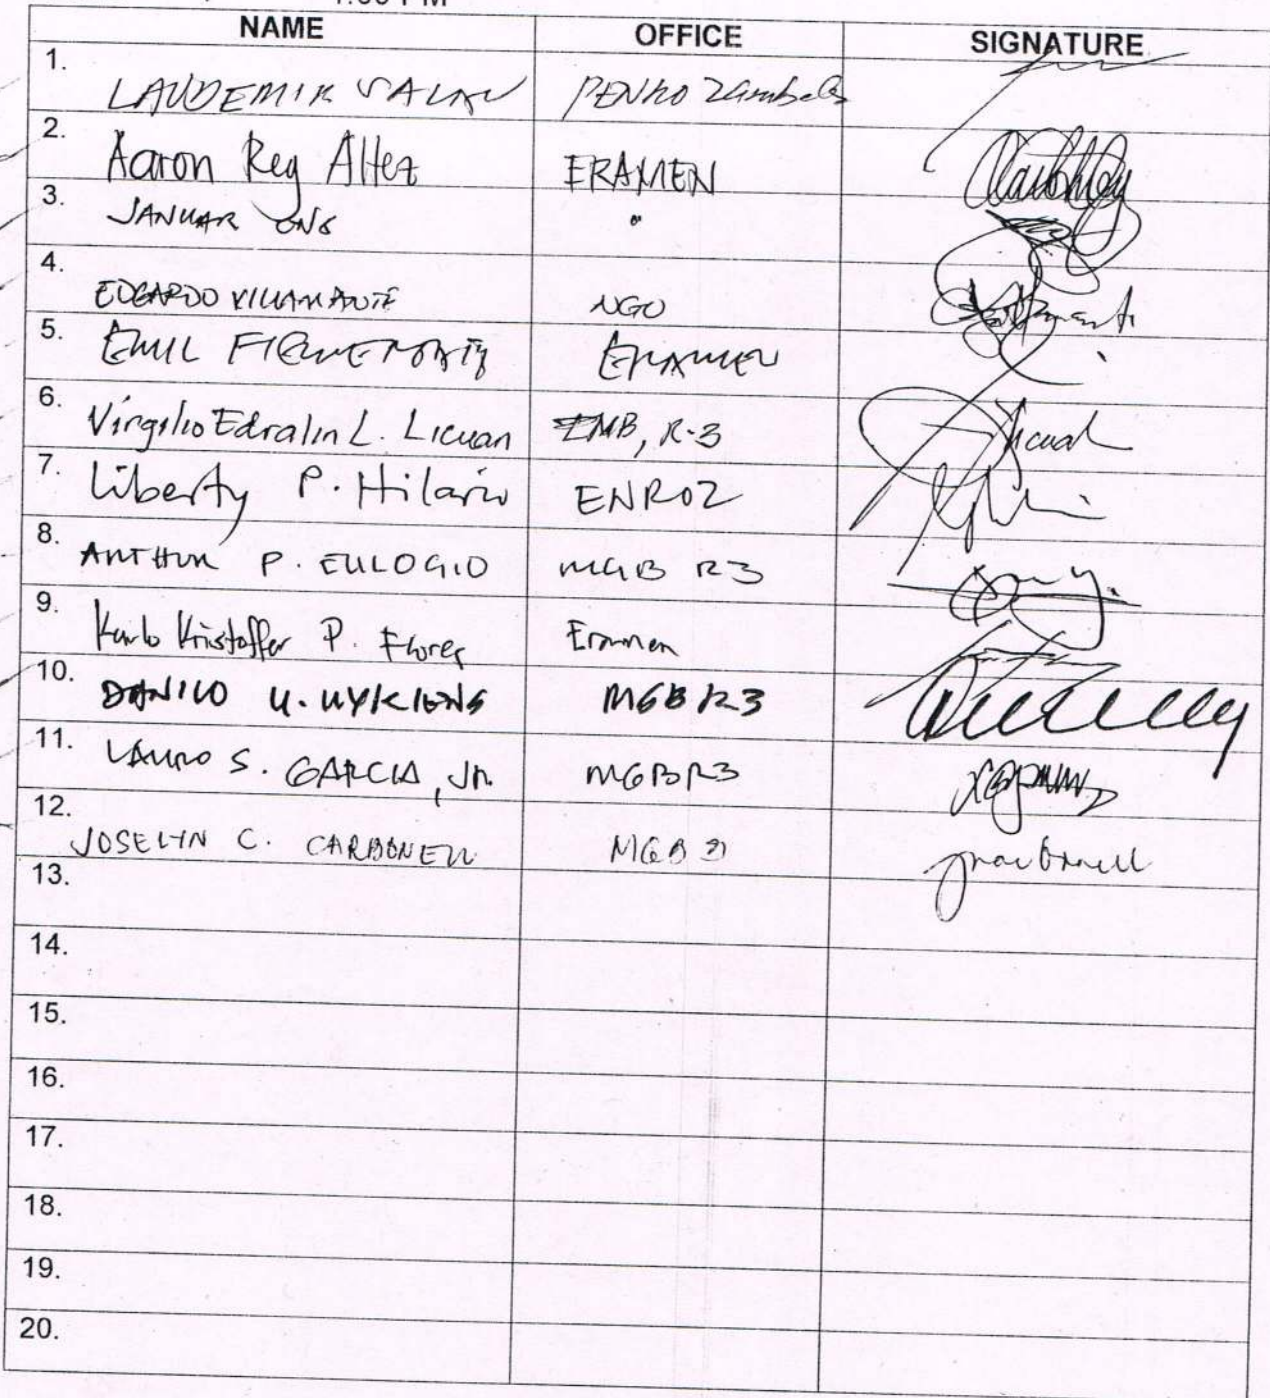 NAME OFFICE SIGNATURE
1. LAUDEMIR SALAC PENRO Zambales
2. Aaron Rey Altez ERAMEN
3. JANUAR ONG "
4. EDGARDO VILLAMANTE NGO
5. EMIL ERAMEN
6. Virgilio Edralin L. Licuan EMB, R-3
7. Liberty P. Hilario ENROZ
8. ARTHUR P. EULOGIO MGB R3
9. Karlo Kristoffer P. Flores Eramen
10. DANILO U. UYKIENG MGB R3
11. LAURO S. GARCIA, JR. MGB R3
12. JOSELYN C. CARBONELL MGB 3
13.
14.
15.
16.
17.
18.
19.
20.